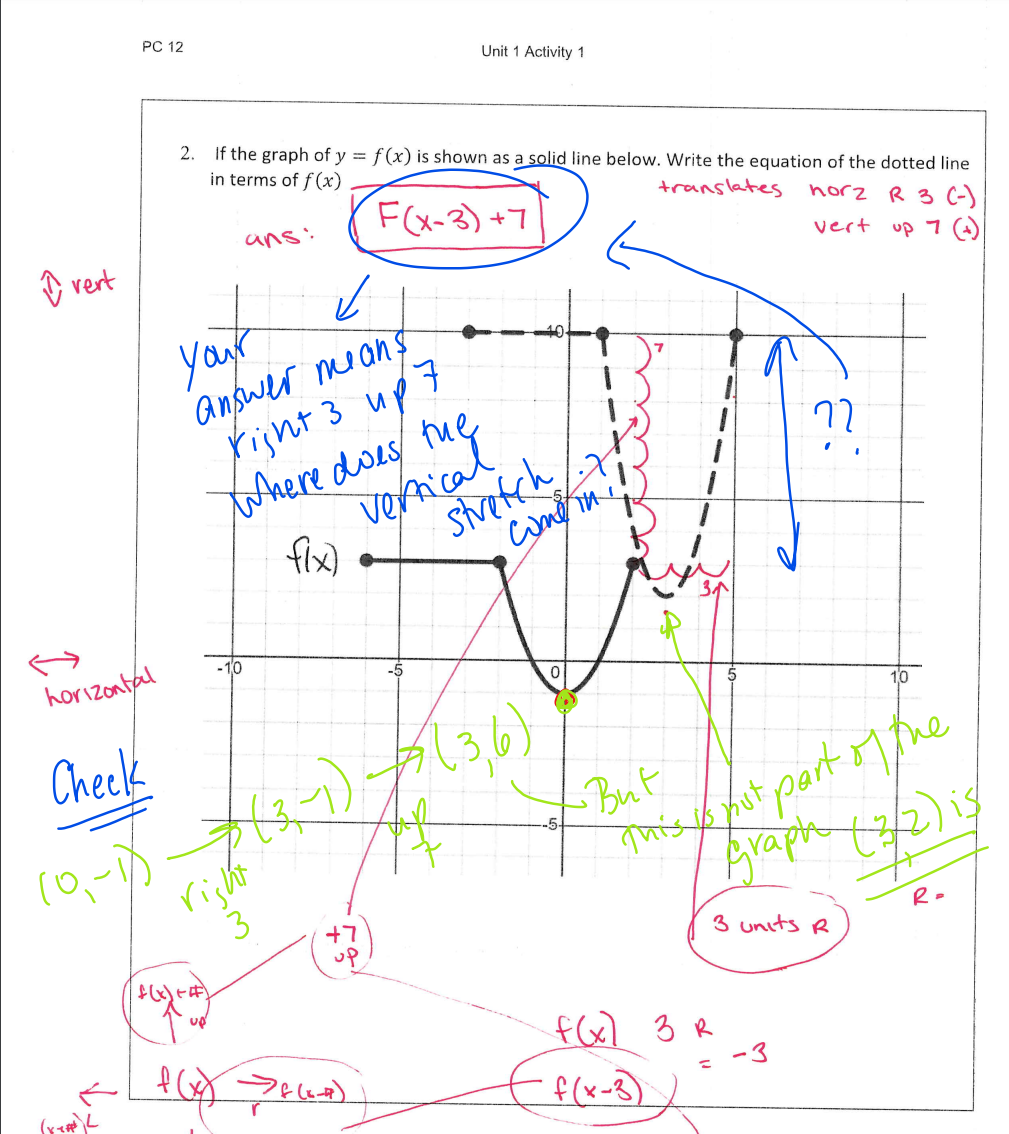 PC 12
Unit 1 Activity 1
2. If the graph of y = f(x) is shown as a solid line below. Write the equation of the dotted line
in terms of f(x)
translates horz R 3 (-)
vert up 7 (+)
ans: F(x-3) +7
vert
10
7
Your
answer means
right 3 up 7
where does the
vertical
stretch
come in?
??
5
f(x)
3
-10
-5
0
5
10
horizontal
Check
(0,-1)
right
3
(3,-1)
up
7
(3,6)
But
this is not part of the
graph (3,2) is
-5
R =
+7
up
3 units R
f(x)+#
up
f(x) 3 R
= -3
f(x) → f(x-#)
r
f(x-3)
(x+#) L